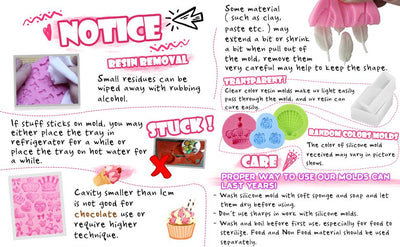 NOTICE
RESIN REMOVAL
Small residues can be
wiped away with rubbing
alcohol.
Some material
( such as clay,
paste etc. ) may
extend a bit or shrink
a bit when pull out of
the mold, remove them
very careful may help to keep the shape.
TRANSPARENT!
Clear color resin molds make uv light easily
pass through the mold, and uv resin can
cure easily.
RANDOM COLORS MOLDS
The color of silicone mold
received may vary in picture
shows.
If stuff sticks on mold, you may
either place the tray in
refrigerator for a while or
place the tray on hot water for
a while.
STUCK !
Cavity smaller than 1cm
is not good for
chocolate use or
require higher
technique.
CARE
PROPER WAY TO USE OUR MOLDS CAN
LAST YEARS!
- Wash silicone mold with soft sponge and soap and let
them dry before using.
- Don't use sharps in work with silicone molds.
- Wash and boil before first use, especially for food to
sterilize. Food and Non Food material should be used
separately.